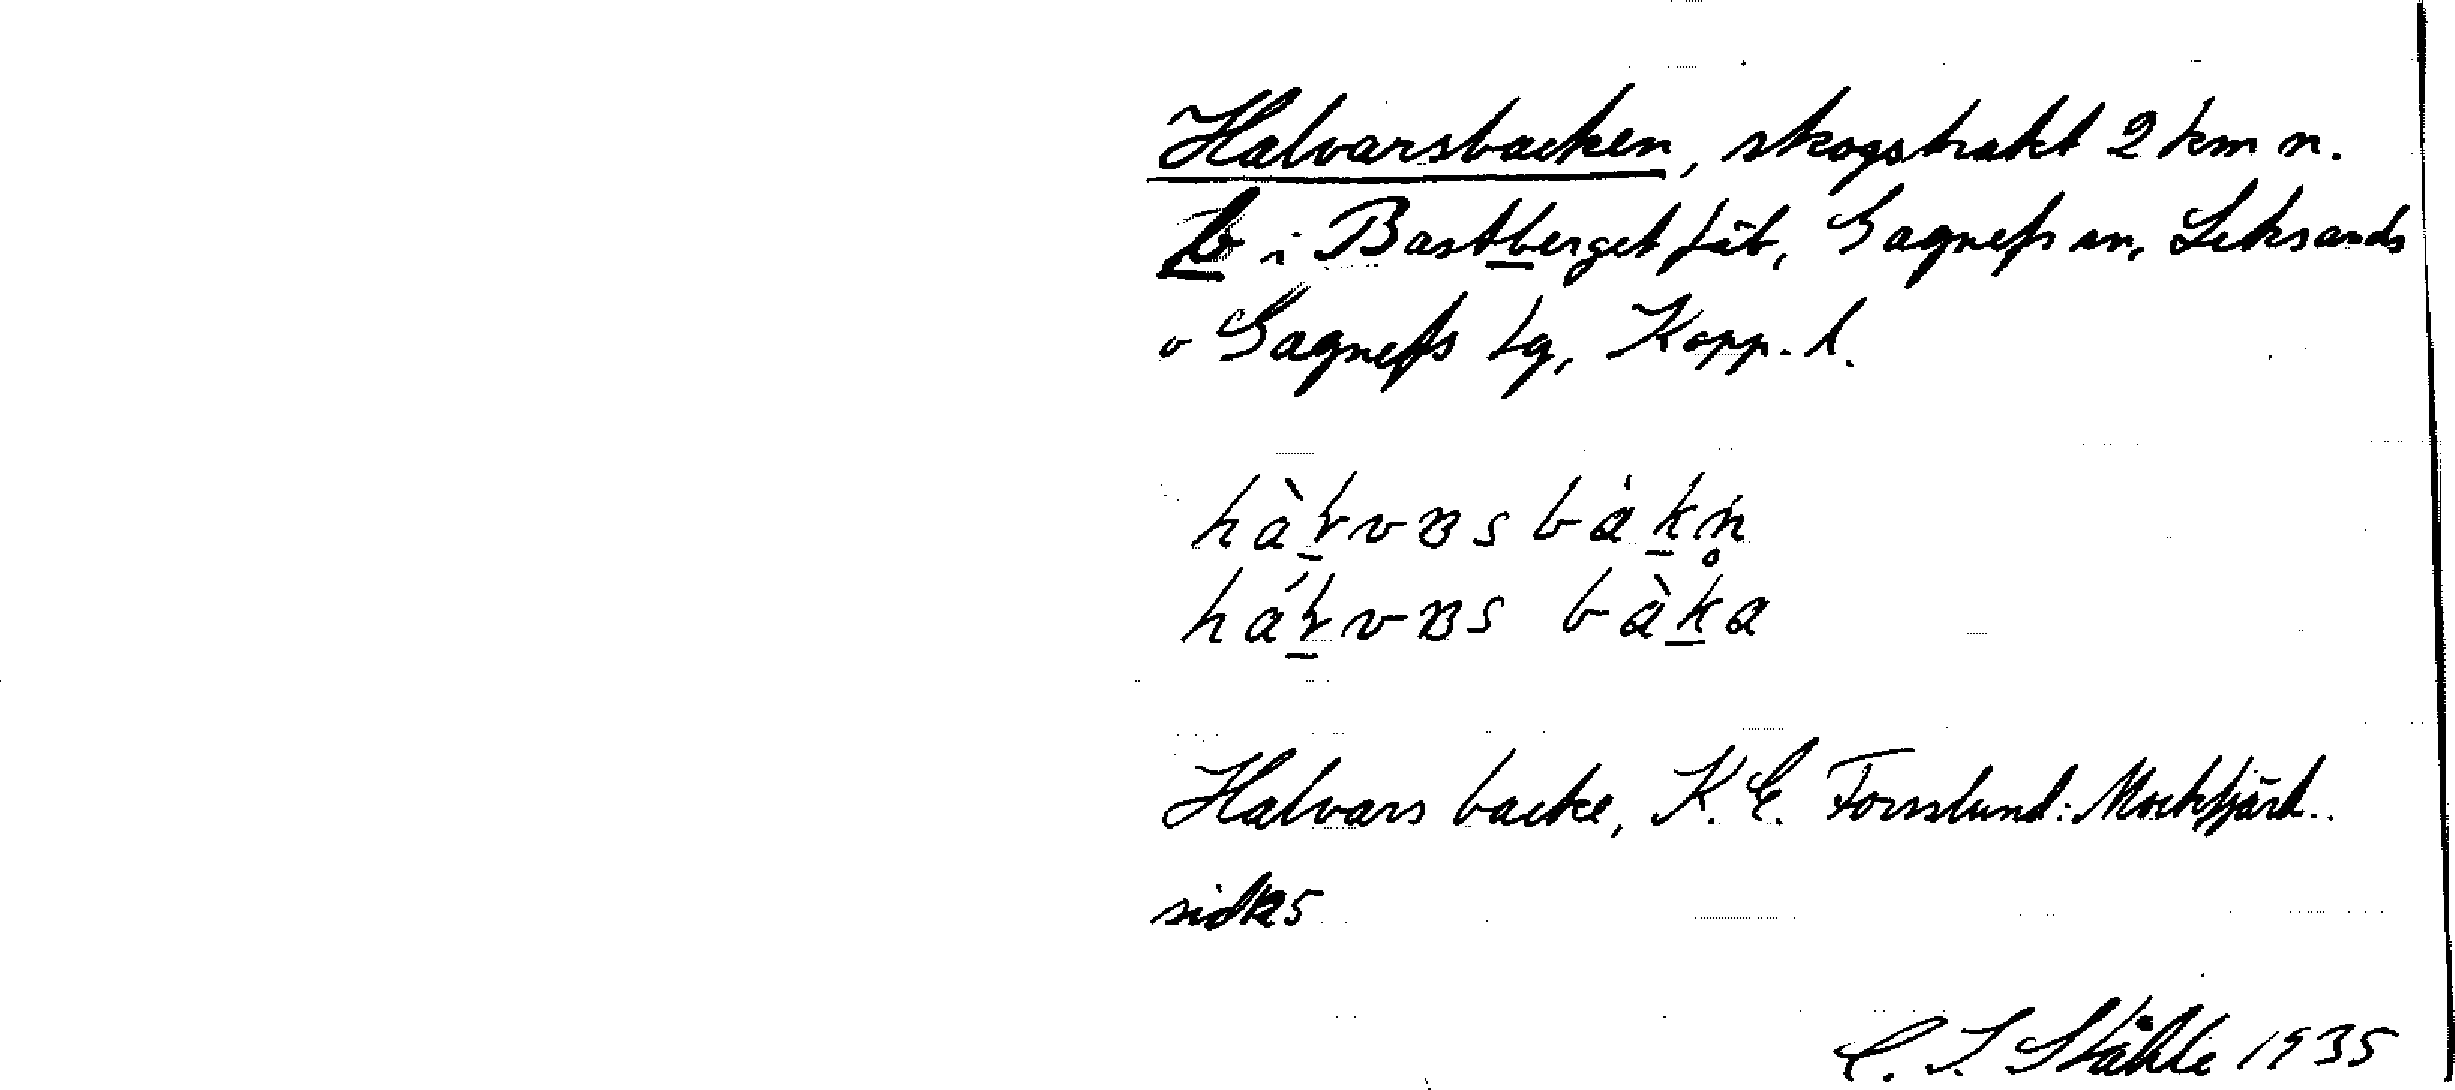 Halvarsbacken, skogstrakt 2 km n.
b i Bastberget fäb, Gagnefs sn, Leksands
o Gagnefs tg, Kopp. l.
hàɫvʙs bàkn̥
háɫvʙs bàka
Halvars backe, K. E. Forsslund: Mockfjärd..
sid 25
C. I. Ståhle 1935